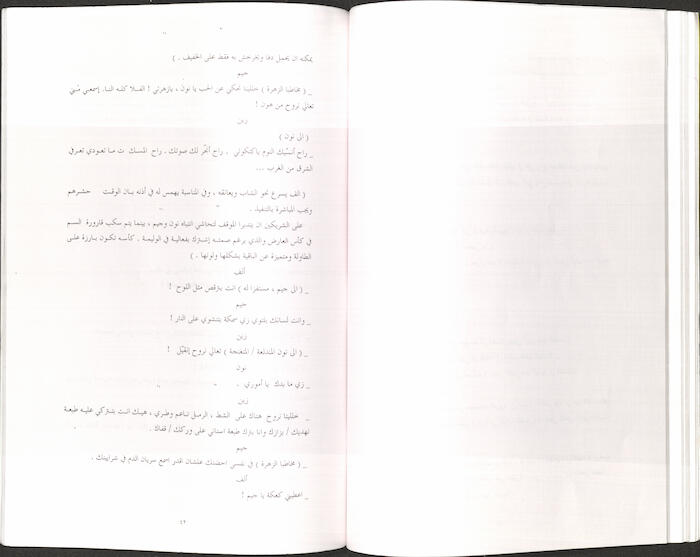 يمكنه ان يحمل دفا ويخرخش به فقط على الخفيف . )
جيم
_ ( مخاطبا الزهرة ) خلينا نحكي عن الحب يا نون ، يازهرتي ! الفـلا كلـه النـا. إسمعـي مـني
تعالي نروح من هون !
زين
( الى نون )
_ راح أنسّيك النوم ياكتكوتي . راح أبحّر لك صوتك . راح المسـك ت مـا تعـودي تعـرفي
الشرق من الغرب ...
( الف يسرع نحو الشاب ويعانقه ، وفي المناسبة يهمس له في أذنه بـان الوقـت حشـرهم
ويجب المباشرة بالتنفيذ .
على الشريكين ان يتدبرا الموقف لتحاشي انتباه نون وجيم ، بينما يتم سكب قارورة السـم
في كأس العارض والذي يرغم صمتـه إشـترك بفعاليـة في الوليمـة . كأسـه تكـون بـارزة علـى
الطاولة ومتميزة عن الباقية بشكلها ولونها . )
ألف
_ ( الى جيم ، مستفزا له ) انت بترقص مثل اللوح !
جيم
_ وانت لسانك بلتوي زي سمكة بتنشوي على النار !
زين
_ ( الى نون المتدلعة / المتغنجة ) تعالي نروح إنقيّل !
نون
_ زي ما بدك يا أموري .
زين
_ خلليتا نروح هناك على الشط ، الرمـل نـاعم وطـري ، هيـك انـت بتـتركي عليـه طبعـة
لهديك / بزازك وانا بترك طبعة اسناني على وركك / قفاك .
جيم
_ ( مخاطبا الزهرة ) في نفسي احضنك علشان اقدر اسمع سريان الدم في شرايينك .
ألف
_ اعطيني كعكة يا جيم !
٤٢